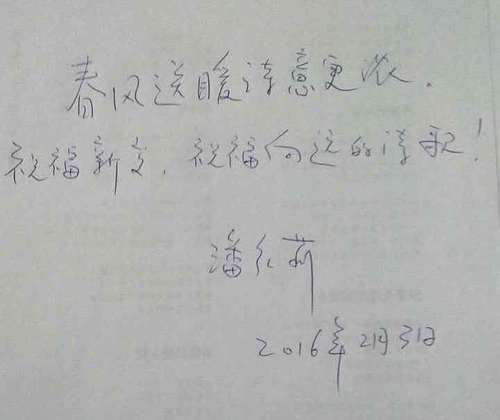 春风送暖诗意更浓.
祝福新文,祝福向选的诗歌!
潘红莉
2016年2月3日